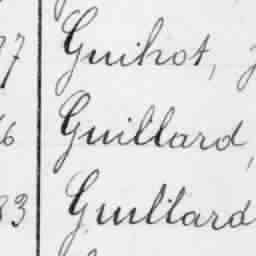 37 Guihot,
6 Guillard,
83 Guillard